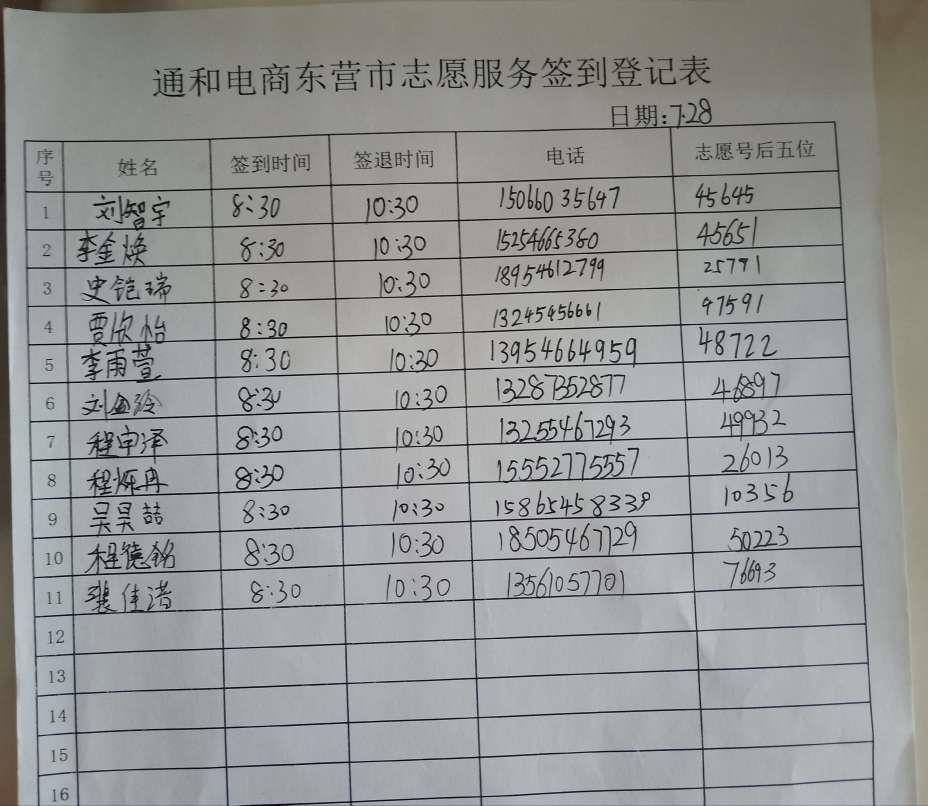 通和电商东营市志愿服务签到登记表
日期:7.28
序号 姓名 签到时间 签退时间 电话 志愿号后五位
1 刘智宇 8:30 10:30 15066035647 45645
2 李金焕 8:30 10:30 15254665360 45651
3 史铠瑞 8:30 10:30 18954612799 25791
4 贾欣怡 8:30 10:30 13245456661 97591
5 李雨萱 8:30 10:30 13954664959 48722
6 刘金玲 8:30 10:30 13287352877 46897
7 程宇泽 8:30 10:30 13255467293 49932
8 程烁丹 8:30 10:30 15552775557 26013
9 吴昊喆 8:30 10:30 15865458339 10356
10 程德铭 8:30 10:30 18505467729 50223
11 裴佳诺 8:30 10:30 13561057701 76693
12
13
14
15
16